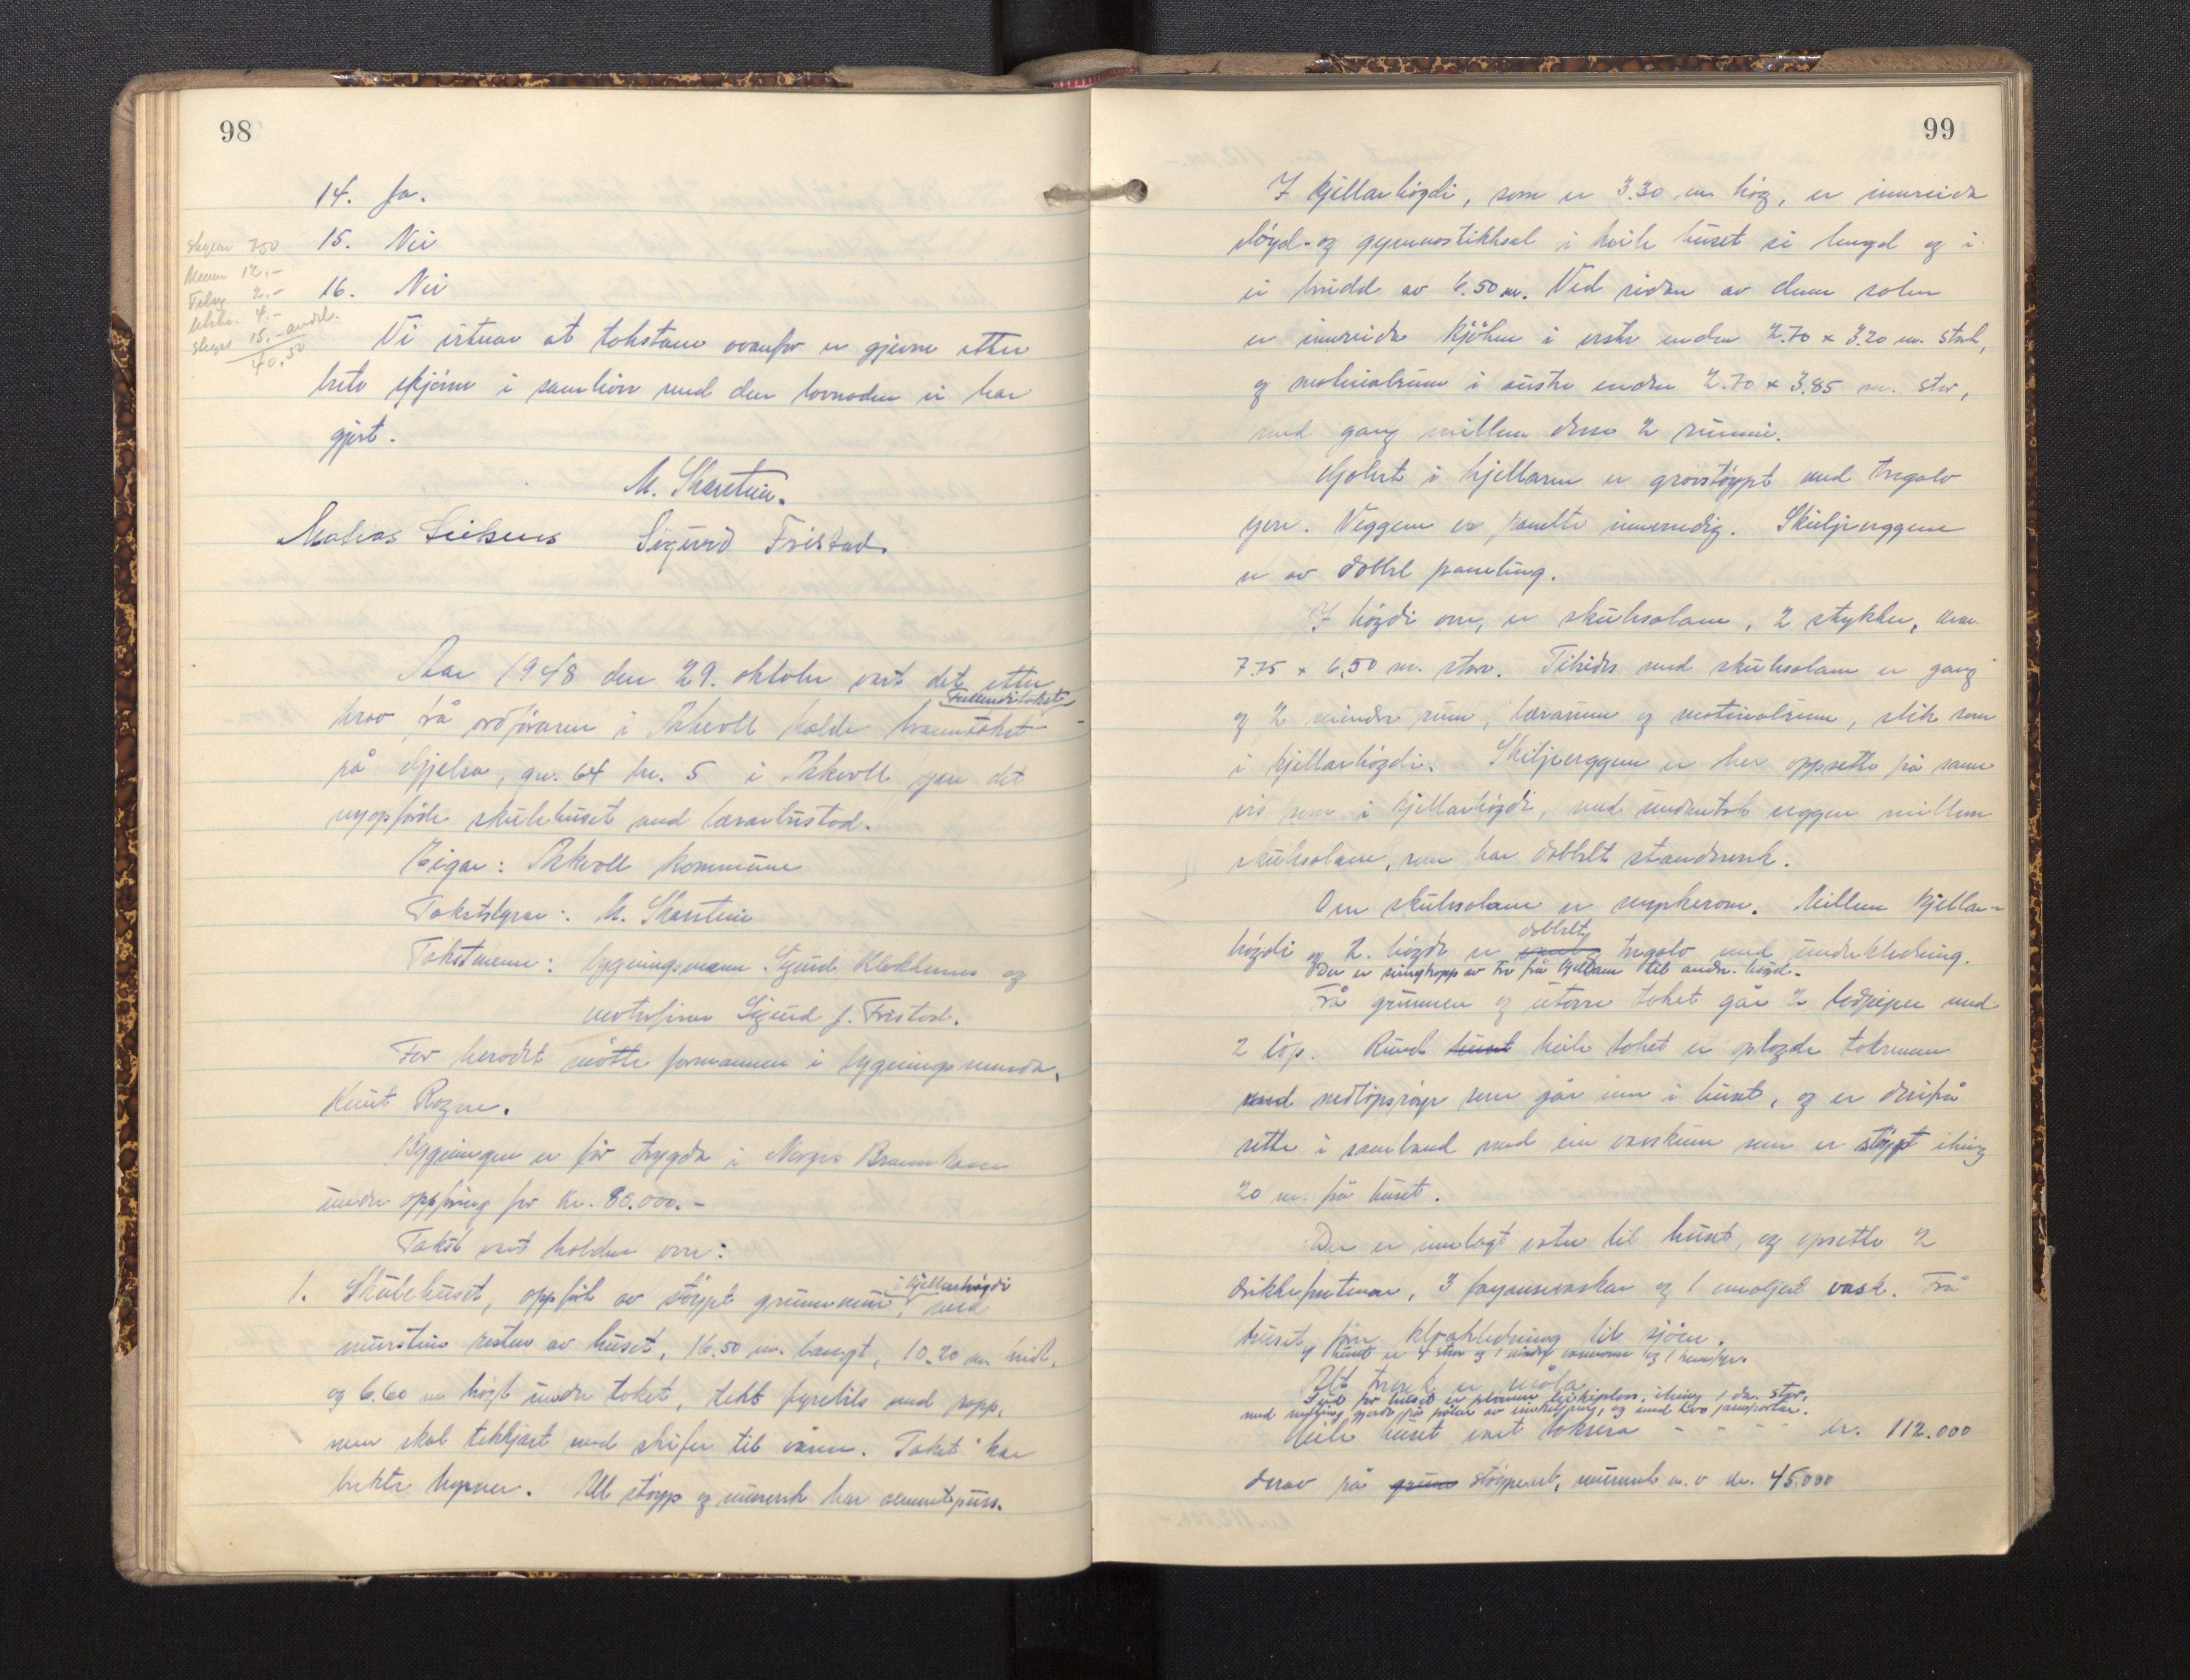 98
14. Ja.
15. Nei
16. Nei
Skyss 7.50
12.-
2.-
4.-
Skyss 15.-
40.50
Vi vitnar at takstane ovanfor er gjevne etter
beste skjøna i samhøve med den lovnaden vi har
gjort.
M. Skarstein.
Matias Sigurd Fristad.
Aar 1948 den 29. oktober vart det etter
krav frå ordføraren i Askvoll halde branntakst
på Gjelsa, gnr. 64 br. 5 i Askvoll yver det
nyoppførde skulehuset med lærarbustad.
Eigar: Askvoll kommune
Takststyrar: M. Skarstein
Takstmenn: bygningsmann Sigurd Klokkernes og
Sigurd J. Fristad.
For heradet møtte formannen i bygningsnemnda,
Knut Rogne.
Bygningen er før trygda i Norges Brannkasse
under oppføring for kr. 80.000.-
Takst vart halden over:
1. Skulehuset, oppført av støypt grunnmur, i kjellarhøgdi med
murstein resten av huset, 16.50 m. langt, 10.20 m. breidt,
og 6.60 m høgt under taket, tekt fyrebils med papp,
men skal tekkjast med skifer til våren. Taket har
brekte . All støyp og murverk har cementpuss.
99
I kjellarhøgdi, som er 3.30 m høg, er innreida
sløyd- og gymnastikksal i heile huset si lengd og i
ei breidd av 6.50 m. Ved sidan av denne salen
er innreida kjøken i vestre enden 2.70 x 3.20 m. stort,
og materialrum i austre enden 2.70 x 3.85 m. stor,
med gang millom desse 2 rummi.
Golvet i kjellaren er grovstøypt med tregolv
yver. Veggene er panelte innvendig. Skiljeveggene
er av dobbel paneling.
I høgdi over, er skulesalane, 2 stykker, kvar
7.75 x 6,50 m. stor. Tilsides med skulesalane er gang
og 2 mindre rum, lærarrum og materialrum, slik som
i kjellarhøgdi. Skiljeveggene er her oppsette på same
vis som i kjellarhøgdi, med undantak veggen millom
skulesalane, som har dobbelt standverk.
Over skulesalane er mørkerom. Millom kjellar-
høgdi og 2. høgde er dobbelt tregolv med underkledning.
Der er av tre frå kjellaren til andre høgd.
Frå grunnen og utover taket går 2 med
2 løp. Rundt heile taket er oplagde takrenner
med nedløpsrøyr som går inn i huset, og er derifrå
sette i samband med ein vasskum som er støypt ikring
20 m. frå huset.
Der er innlagt vatn til huset, og opsette 2
drikkefontenar, 3 fayansevaskar og 1 emaljert vask. Frå
huset fører kloakkledning til sjøen.
I huset er 4 store og 1 mindre
Alt treverk er måla
Ved huset er planert leikeplass, ikring 1 da. stor,
med gjerde på pålar av , og med two jarnportar.
Heile huset vart taksera - - - kr. 112.000
derav på støypearb, murverk m. v. kr. 45.000